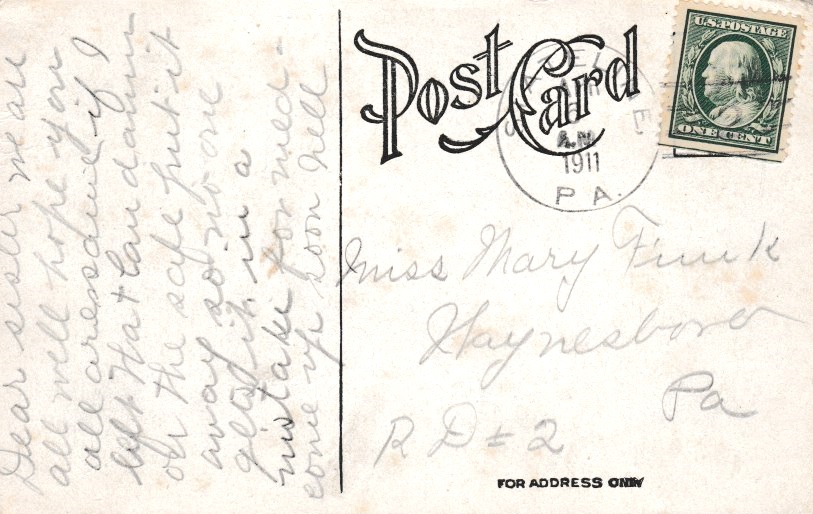 Dear sister we are
all well hope you
all are same if I
left
on the safe put it
away so no one
gets it in a
mistake for med-
come up soon Nell
Post Card
U.S. POSTAGE
ONE CENT
A.M.
1911
PA.
Miss Mary Funk
Waynesboro
Pa
R D # 2
FOR ADDRESS ONLY